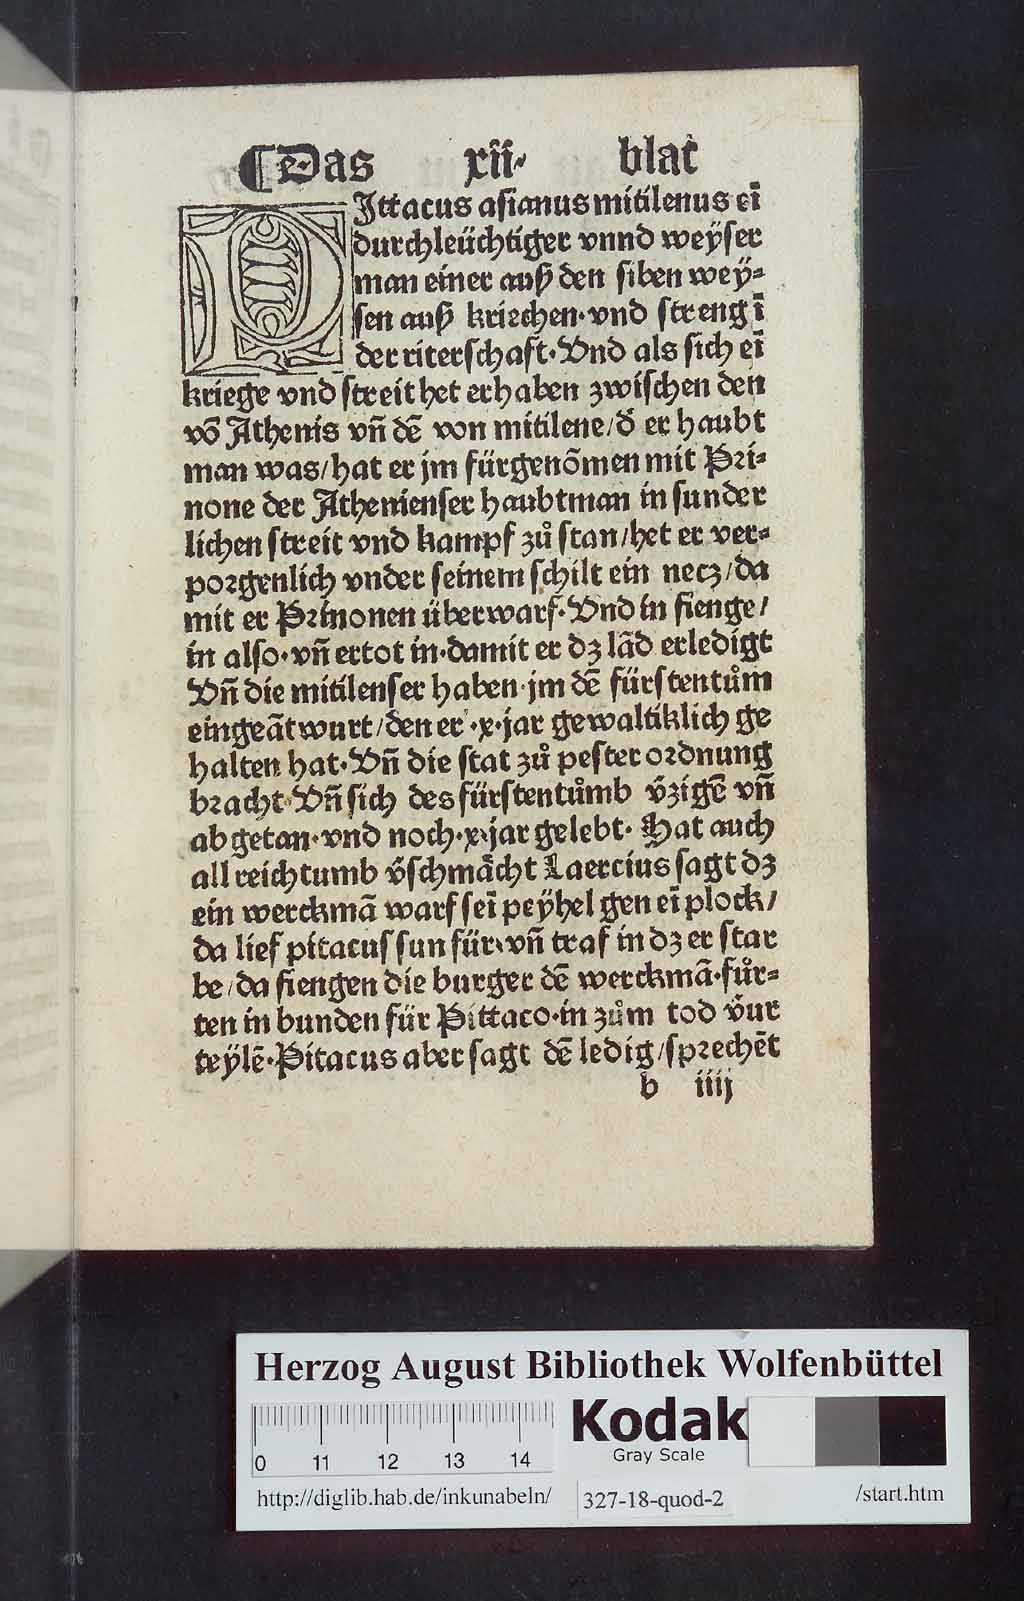 ¶Das xii· blat
PIttacus asianus mitilenus eī
durchleüchtiger vnnd weÿser
man einer auß den siben weÿ⸗
sen auß kriechen·vnd streng ī
der riterschaft·Vnd als sich eī
kriege vnd streit het erhaben zwischen den
vō Athenis vñ dē von mitilene/d̄ er haubt
man was/hat er jm fürgenōmen mit Pri⸗
none der Athenienser haubtman in sunder
lichen streit vnd kampf zů stan/het er ver⸗
porgenlich vnder seinem schilt ein necz/da
mit er Prinonen überwarf·Vnd in fienge/
in also·vñ ertot in·damit er dz lād erledigt
Vñ die mitilenser haben jm dē fürstentům
eingeātwurt/den er·x·jar gewaltiklich ge
halten hat·Vñ die stat zů pester ordnung
bracht·Vñ sich des fürstentůmb v̄zigē vñ
abgetan·vnd noch·x·jar gelebt·Hat auch
all reichtumb v̄schmächt Laercius sagt dz
ein werckmā warf seī peÿhel gen eī plock/
da lief pitacus sun für·vñ traf in dz er star
be/da fiengen die burger dē werckmā·fůr⸗
ten in bunden für Pittaco·in zům tod v̄ur
teÿlē·Pitacus aber sagt dē ledig/sprechēt
b iiij
Herzog August Bibliothek Wolfenbüttel
Kodak
Gray Scale
0 11 12 13 14
http://diglib.hab.de/inkunabeln/ 327-18-quod-2 /start.htm